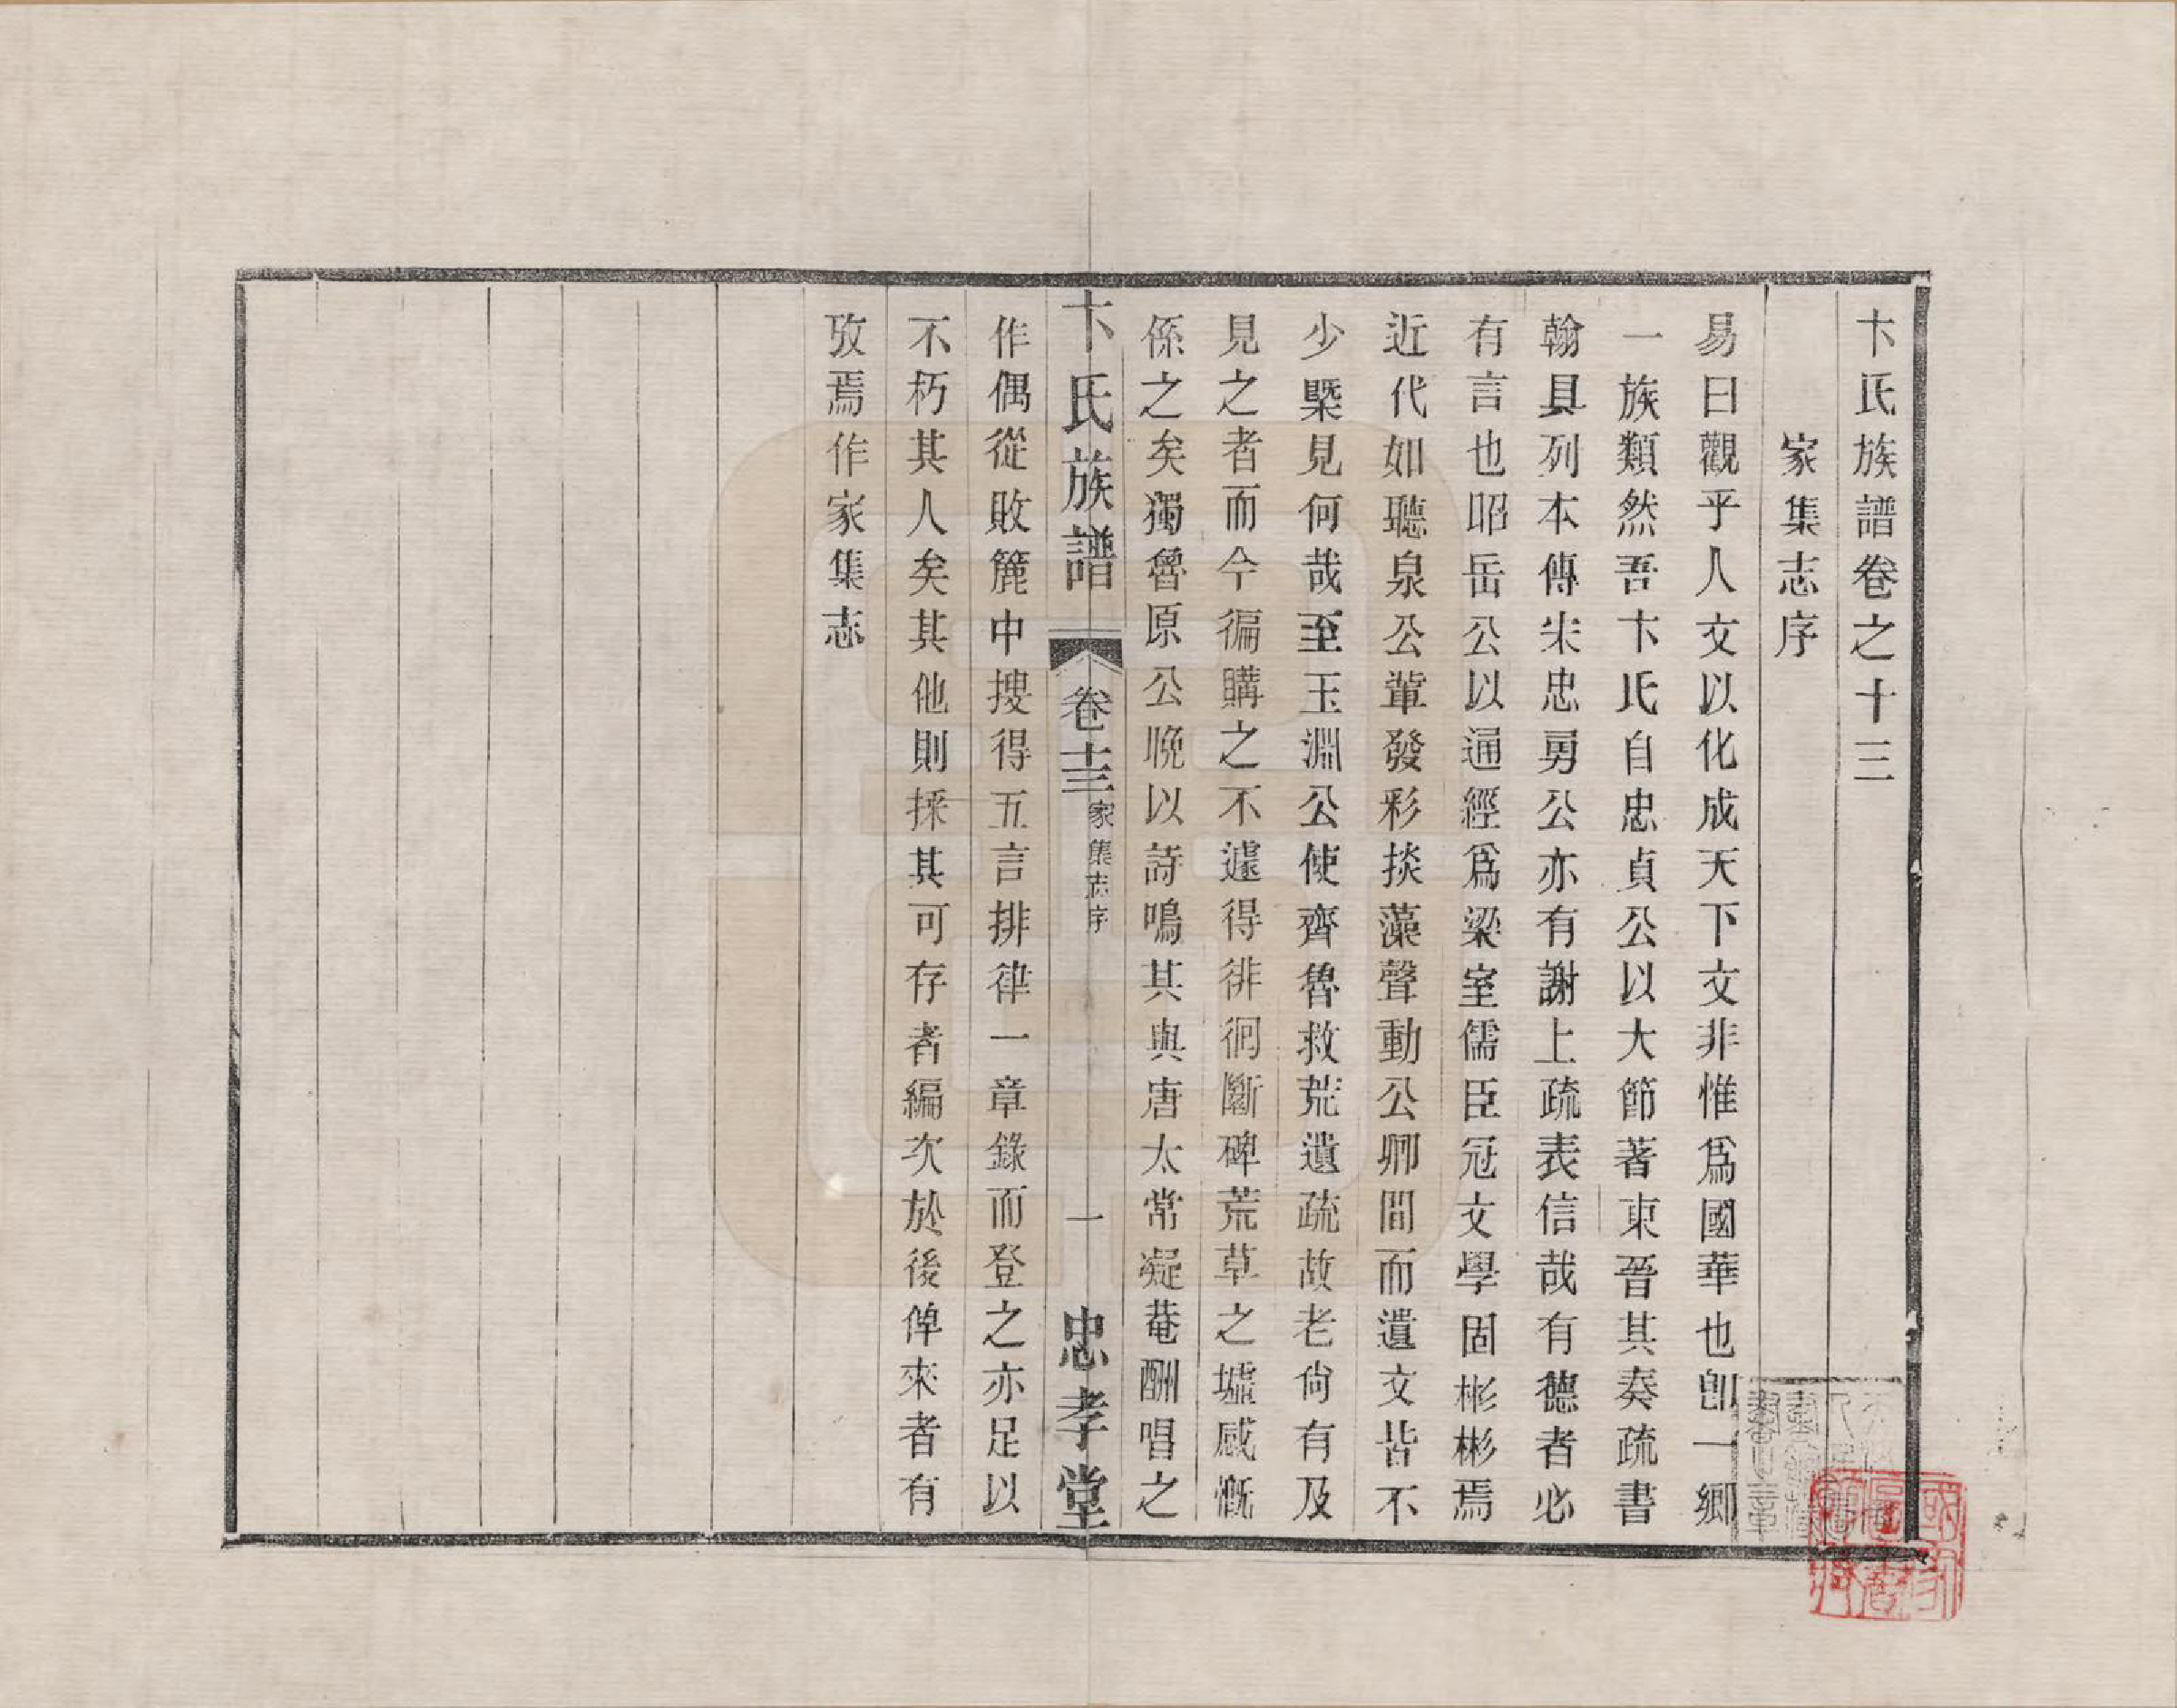 卞氏族譜卷之十三
家集志序
易曰觀乎人文以化成天下文非惟爲國華也卽一鄉
一族類然吾卞氏自忠貞公以大節著東晉其奏疏書
翰具列本傳宋忠勇公亦有謝上疏表信哉有德者必
有言也昭岳公以通經爲梁室儒臣冠文學固彬彬焉
近代如聽泉公輩發彩掞藻聲動公卿間而遺文皆不
少槩見何哉至玉淵公使齊魯救荒遺疏故老尙有及
見之者而今徧購之不遽得徘徊斷碑荒草之墟感慨
係之矣獨魯原公晚以詩鳴其與唐太常凝菴酬唱之
卞氏族譜 卷十三 家集志序 一 忠孝堂
作偶從敗簏中搜得五言排律一章錄而登之亦足以
不朽其人矣其他則採其可存者編次於後俾來者有
攷焉作家集志